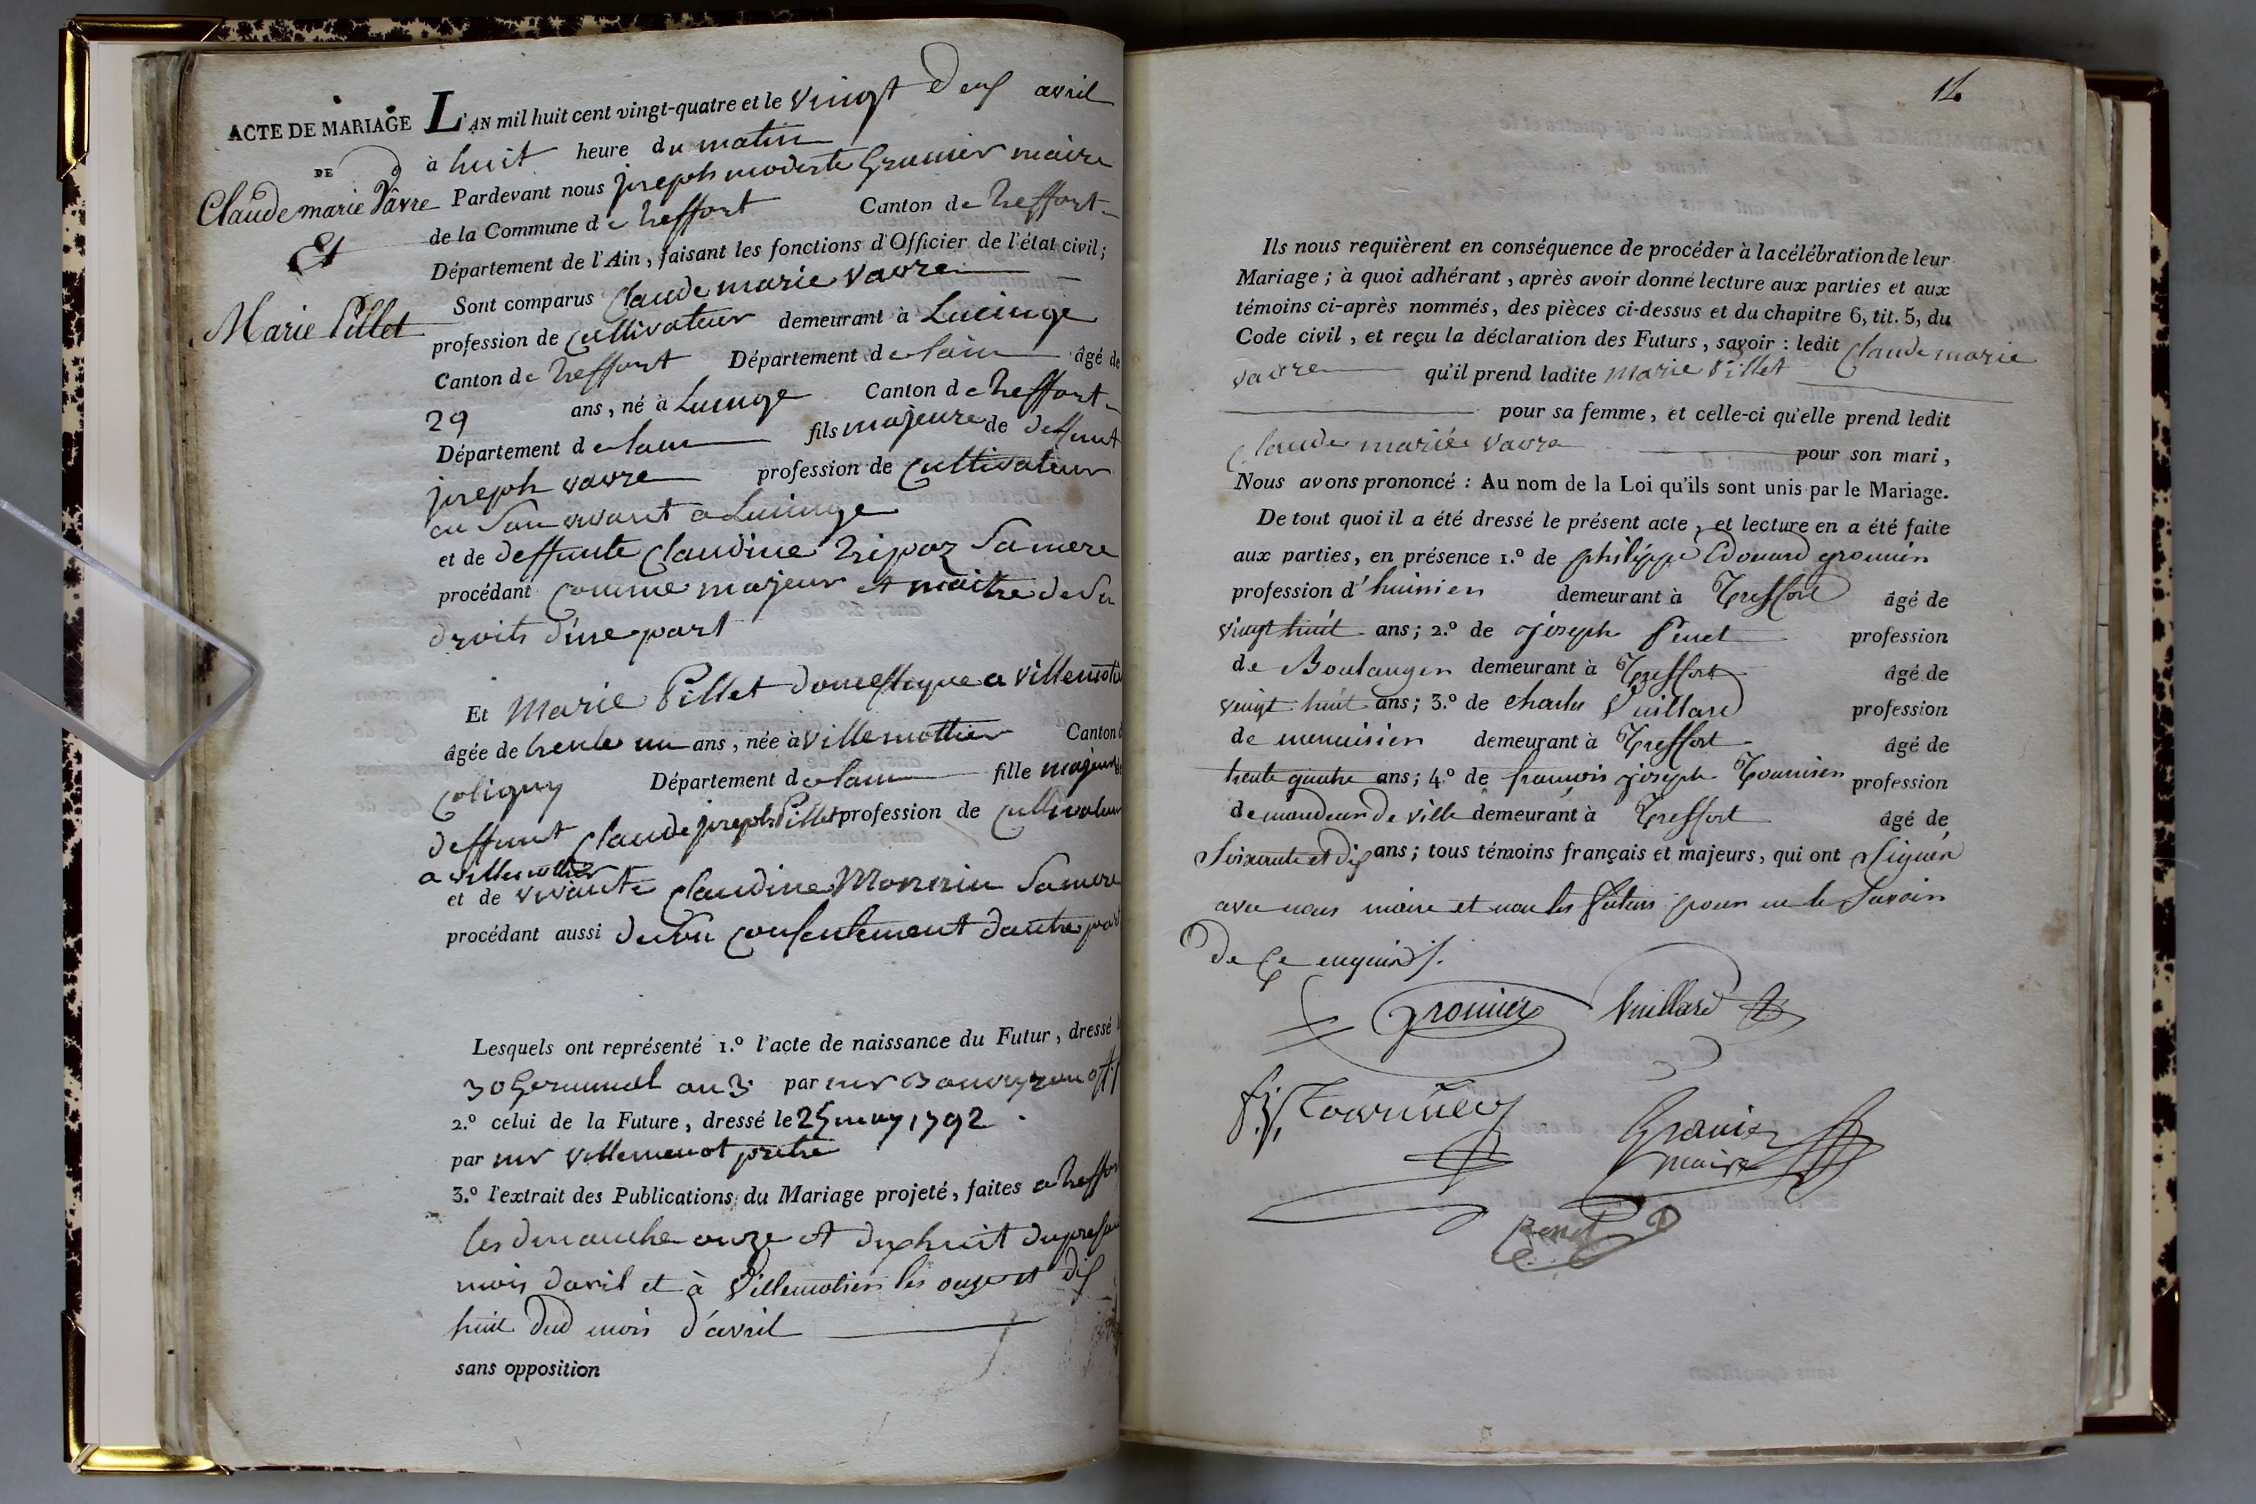 ACTE DE MARIAGE
DE
Claude marie Vavre
Et
Marie Pillet
L'AN mil huit cent vingt-quatre et le vingt deux avril
à huit heure du matin
Pardevant nous joseph modeste Gromier maire
de la Commune de treffort Canton de treffort
Département de l'Ain, faisant les fonctions d'Officier de l'état civil;
Sont comparus Claude marie vavre
profession de cultivateur demeurant à Lucinge
Canton de treffort Département de lain âgé de
29 ans, né à Lucinge Canton de treffort
Département de lain fils majeure de deffunt
joseph vavre profession de cultivateur
au Son vivant a Lucinge
et de deffunte Claudine tripoz Sa mere
procédant comme majeur et maitre de Ses
droits d'une part
Et Marie Pillet domestique a villemotier
âgée de trente un ans, née à villemottier Canton d
coligny Département de lain fille majeure de
deffunt Claude joseph Pillet profession de cultivateur
a villemottier
et de vivante Claudine Monnin Sa mere
procédant aussi de Son consentement dautre part
Lesquels ont représenté 1.º l'acte de naissance du Futur, dressé l
30 Germinal an 3 par mr
2.º celui de la Future, dressé le 25 may 1792
par mr villemenot pretre
3.º l'extrait des Publications du Mariage projeté, faites a treffort
les dimanche onze et dix huit du present
mois davril et à Villemotier les onze et dix
huit dud mois d'avril
sans opposition
12
Ils nous requièrent en conséquence de procéder à la célébration de leur
Mariage; à quoi adhérant, après avoir donné lecture aux parties et aux
témoins ci-après nommés, des pièces ci-dessus et du chapitre 6, tit. 5, du
Code civil, et reçu la déclaration des Futurs, savoir: ledit Claude marie
vavre qu'il prend ladite marie Pillet
pour sa femme, et celle-ci qu'elle prend ledit
Claude marie vavre pour son mari,
Nous avons prononcé: Au nom de la Loi qu'ils sont unis par le Mariage.
De tout quoi il a été dressé le présent acte, et lecture en a été faite
aux parties, en présence 1.º de philippe Edouard gromier
profession d'huissier demeurant à Treffort âgé de
vingt huit ans; 2.º de joseph Penet profession
de Boulanger demeurant à Treffort âgé de
vingt huit ans; 3.º de charles Vuillard profession
de menuisier demeurant à Treffort âgé de
trente quatre ans; 4.º de françois joseph Tournier profession
de mandeur de ville demeurant à Treffort âgé de
Soixante et dix ans; tous témoins français et majeurs, qui ont Signés
avec nous maire et non les futurs pour ne le Savoir
De Ce enquis
Gromier Vuillard
f. j. Tournier
Gromier
maire
Penet